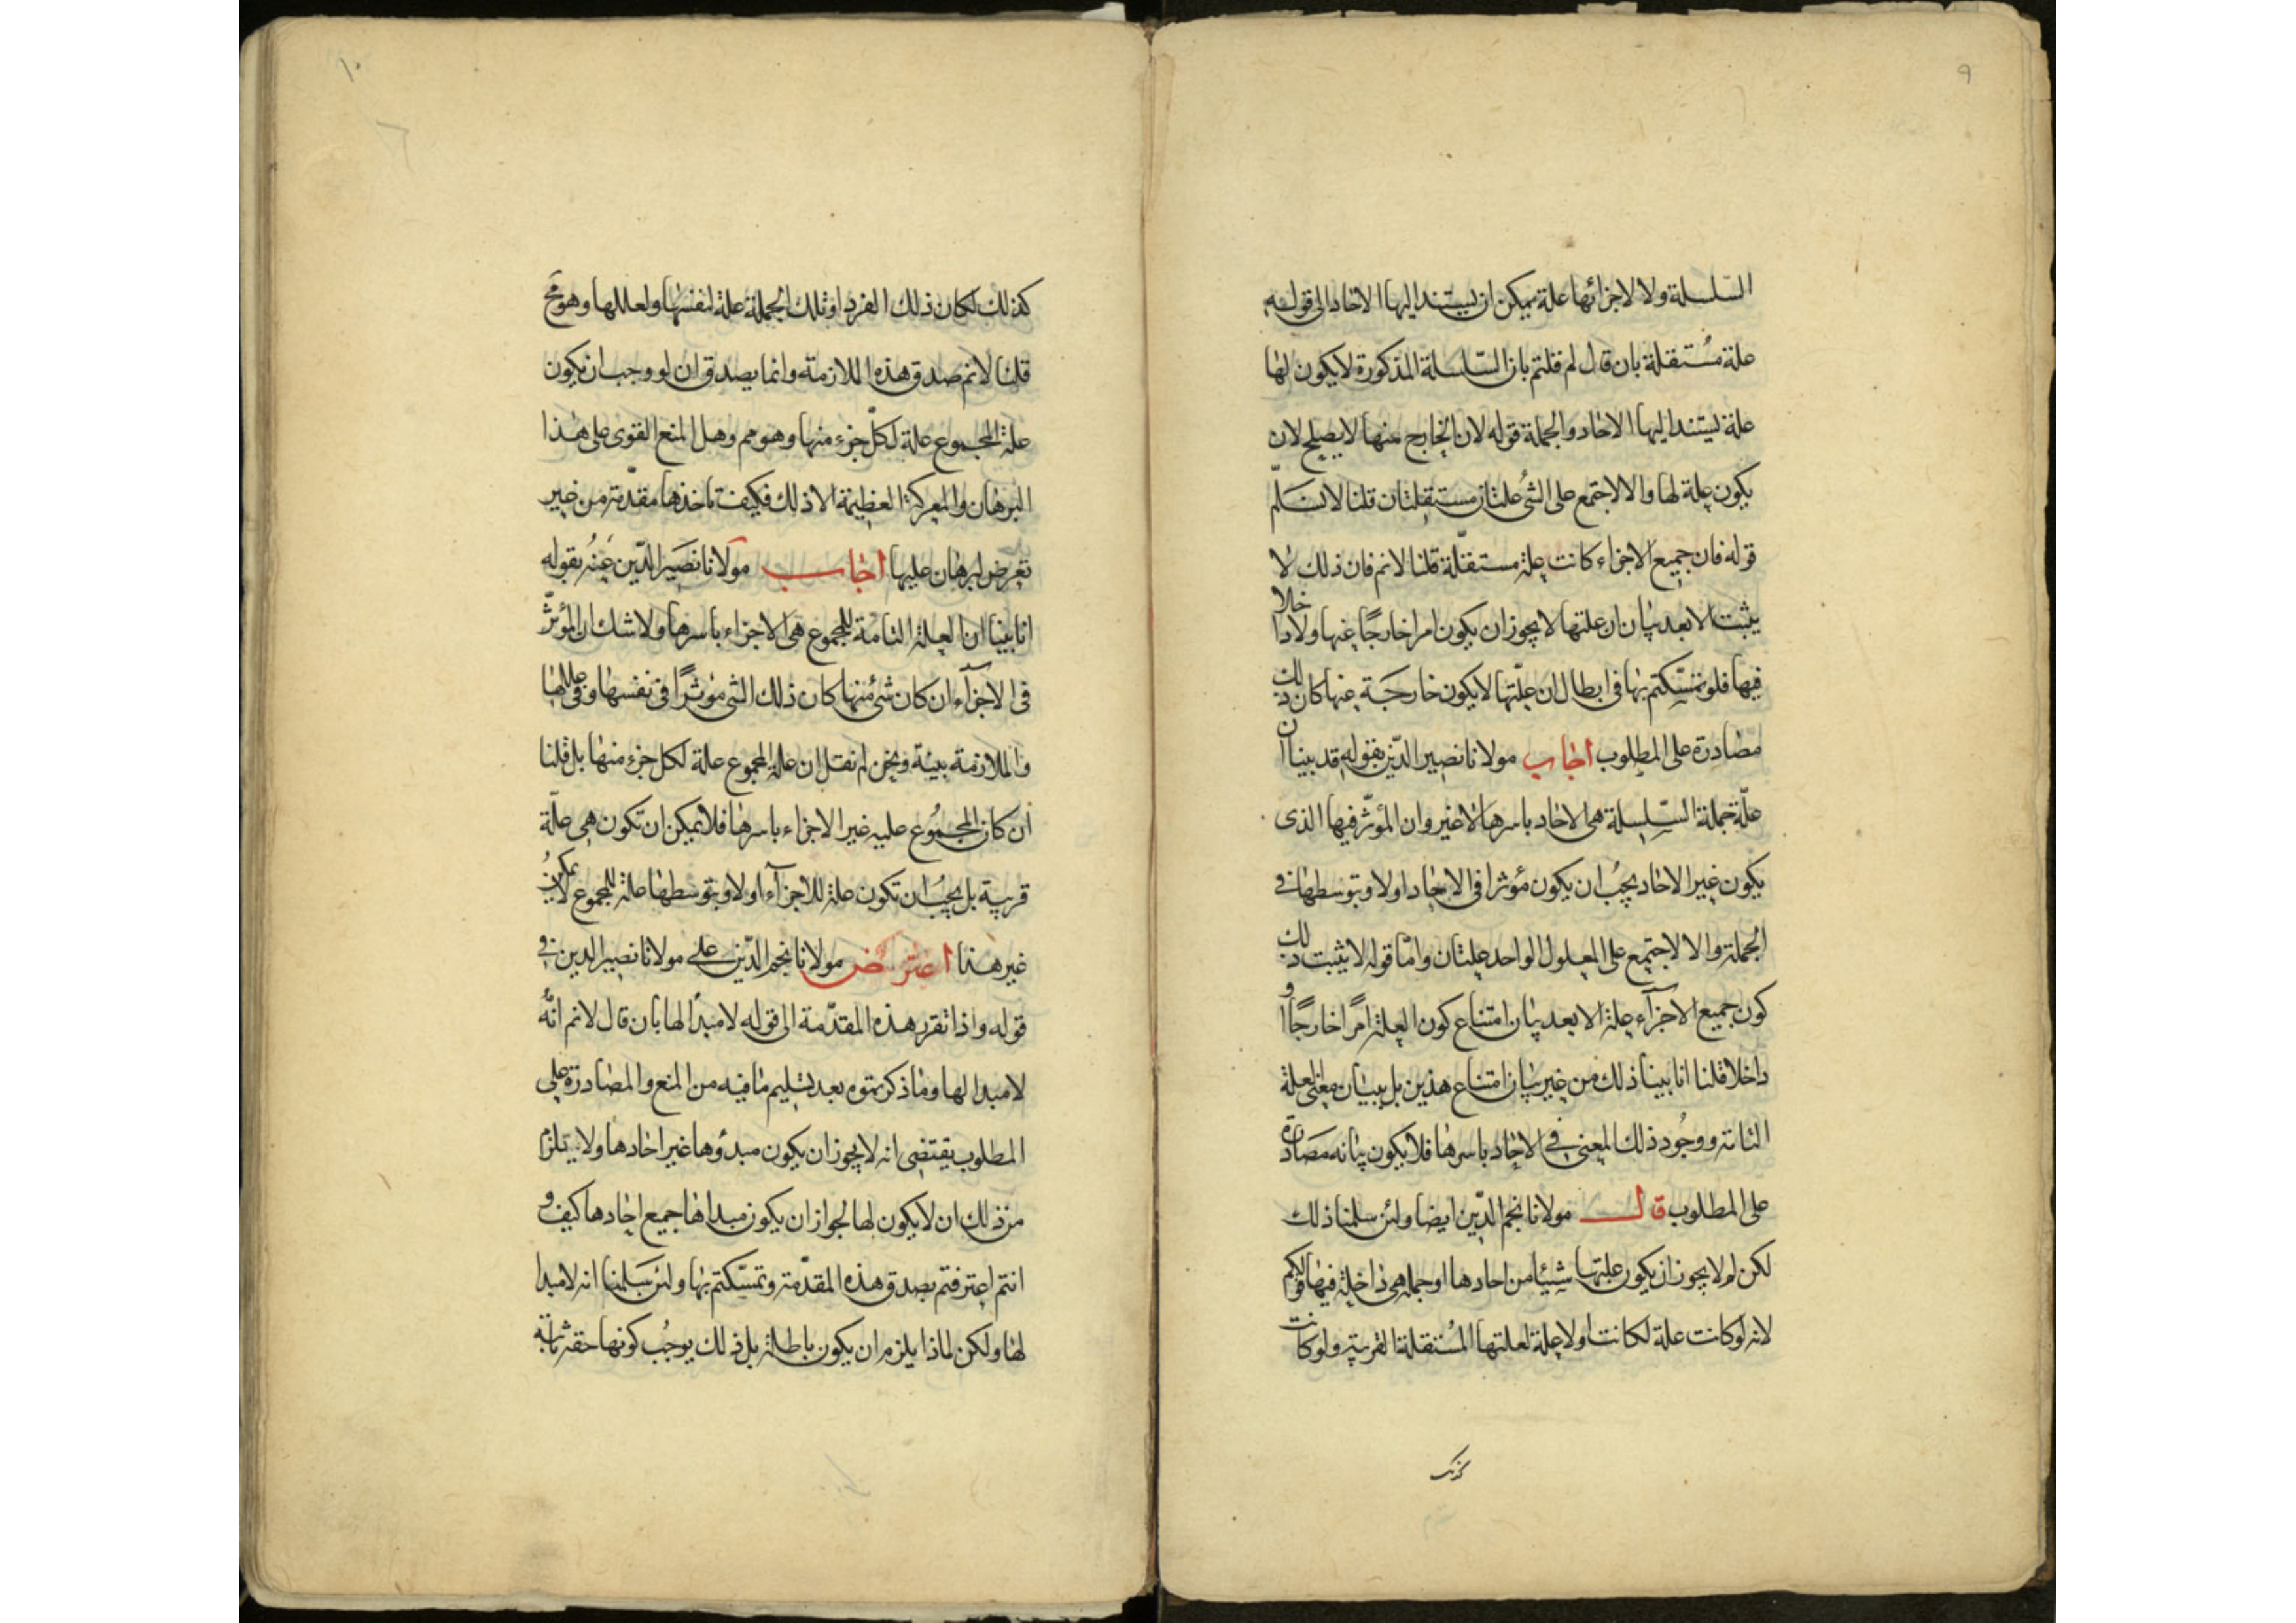 ٩
السّلسلة ولا لاجزائها علة يمكن ان يستند اليها الاحاد الى قوله
علة مُستقلة بان قال لم قلتم بان السّلسلة المذكورة لا يكون لها
علة يستند اليها الاحاد والجملة قوله لان الخارج منها لا يصلح لان
يكون علة لها والا لاجتمع على الشئ علتان مستقلتان قلنا لا نسَلّم
قوله فان جميع الاجزاء كانت علة مستقلّة قلنا لانم فان ذلك لا
يثبت الا بعد بيان ان علتها لا يجوز ان يكون امرا خارجًا عنها ولا داخلا
فيها فلو تمسّكتم بها فى ابطال ان علّتها لا يكون خارجَة عنها كان ذلك
مصادرة على المطلوب اجاب مولانا نصير الدّين بقوله قد بينا ان
علّة جملة السّلسلة هى الاحاد باسرها لا غير وان المؤثّر فيها الذى
يكون غير الاحاد يجبُ ان يكون مؤثرا فى الاحاد اولا وبتوسطها فى
الجملة والا لاجتمع على المعلول الواحد علتان وامّا قوله لا يثبت ذلك
كون جميع الاجزآء علة الا بعد بيان امتناع كون العلة امرًا خارجًا او
داخلا قلنا انا بينا ذلك من غير بيان امتناع هذين بل ببيان معنى العلة
التامة ووجُود ذلك المعنى فى الاحاد باسرها فلا يكون بيانه مصَادرة
على المطلوب قال مولانا نجم الدّين ايضا ولئن سلمنا ذلك
لكن لم لا يجوز ان يكون علتها شيئا من احادها او جملة هى داخلة فيها قولكم
لانه لو كانت علة لكانت اولا علة لعلتها المُستقلة القريبة ولو كانت
كذلك
١٠
كذلك لكان ذلك الفرد او تلك الجملة علة لنفسها ولعللها وهو مح
قلنا لانم صدق هذه الملازمة وانما يصدق ان لو وجب ان يكون
علة المجموع علة لكلّ جزء منها وهو مم وهل المنع القوى على هذا
البرهان والمعركة العظيمة الا ذلك فكيف تاخذها مقدّمة من غير
تعرض لبرهان عليها اجاب مولانا نصَير الدّين عنهُ بقوله
انا بينا ان العلة التامة للمجموع هى الاجزاء باسرها ولا شك ان المؤثّر
فى الاجزآء ان كان شئ منها كان ذلك الشئ مؤثرًا فى نفسها وفى عللها
والملازمة بينة ونحن لم نقل ان علة المجموع علة لكل جزء منها بل قلنا
ان كان المجمُوع عليه غير الاجزاء باسرها فلا يمكن ان تكون هى علّة
قريبة بل يجبُ ان تكون علة للاجزآء اولا وبتوسطها علة للمجموع لا يمكن
غير هذا اعترض مولانا نجم الدّين على مولانا نصير الدين فى
قوله واذا تقرر هذه المقدّمة الى قوله لا مبدأ لها بان قال لانم انّه
لا مبدا لها وما ذكرتموه بعد تسليم ما فيه من المنع والمصادرة على
المطلوب يقتضى انه لا يجوز ان يكون مبدؤها غير احادها ولا يلزم
من ذلك ان لا يكون لها لجواز ان يكون مبداها جميع احادها كيف و
انتم اعترفتم بصدق هذه المقدّمة وتمسّكتم بها ولئن سَلمنا انه لا مبدا
لها ولكن لماذا يلزم ان يكون باطلة بل ذلك يوجُب كونها حقة ثابتة